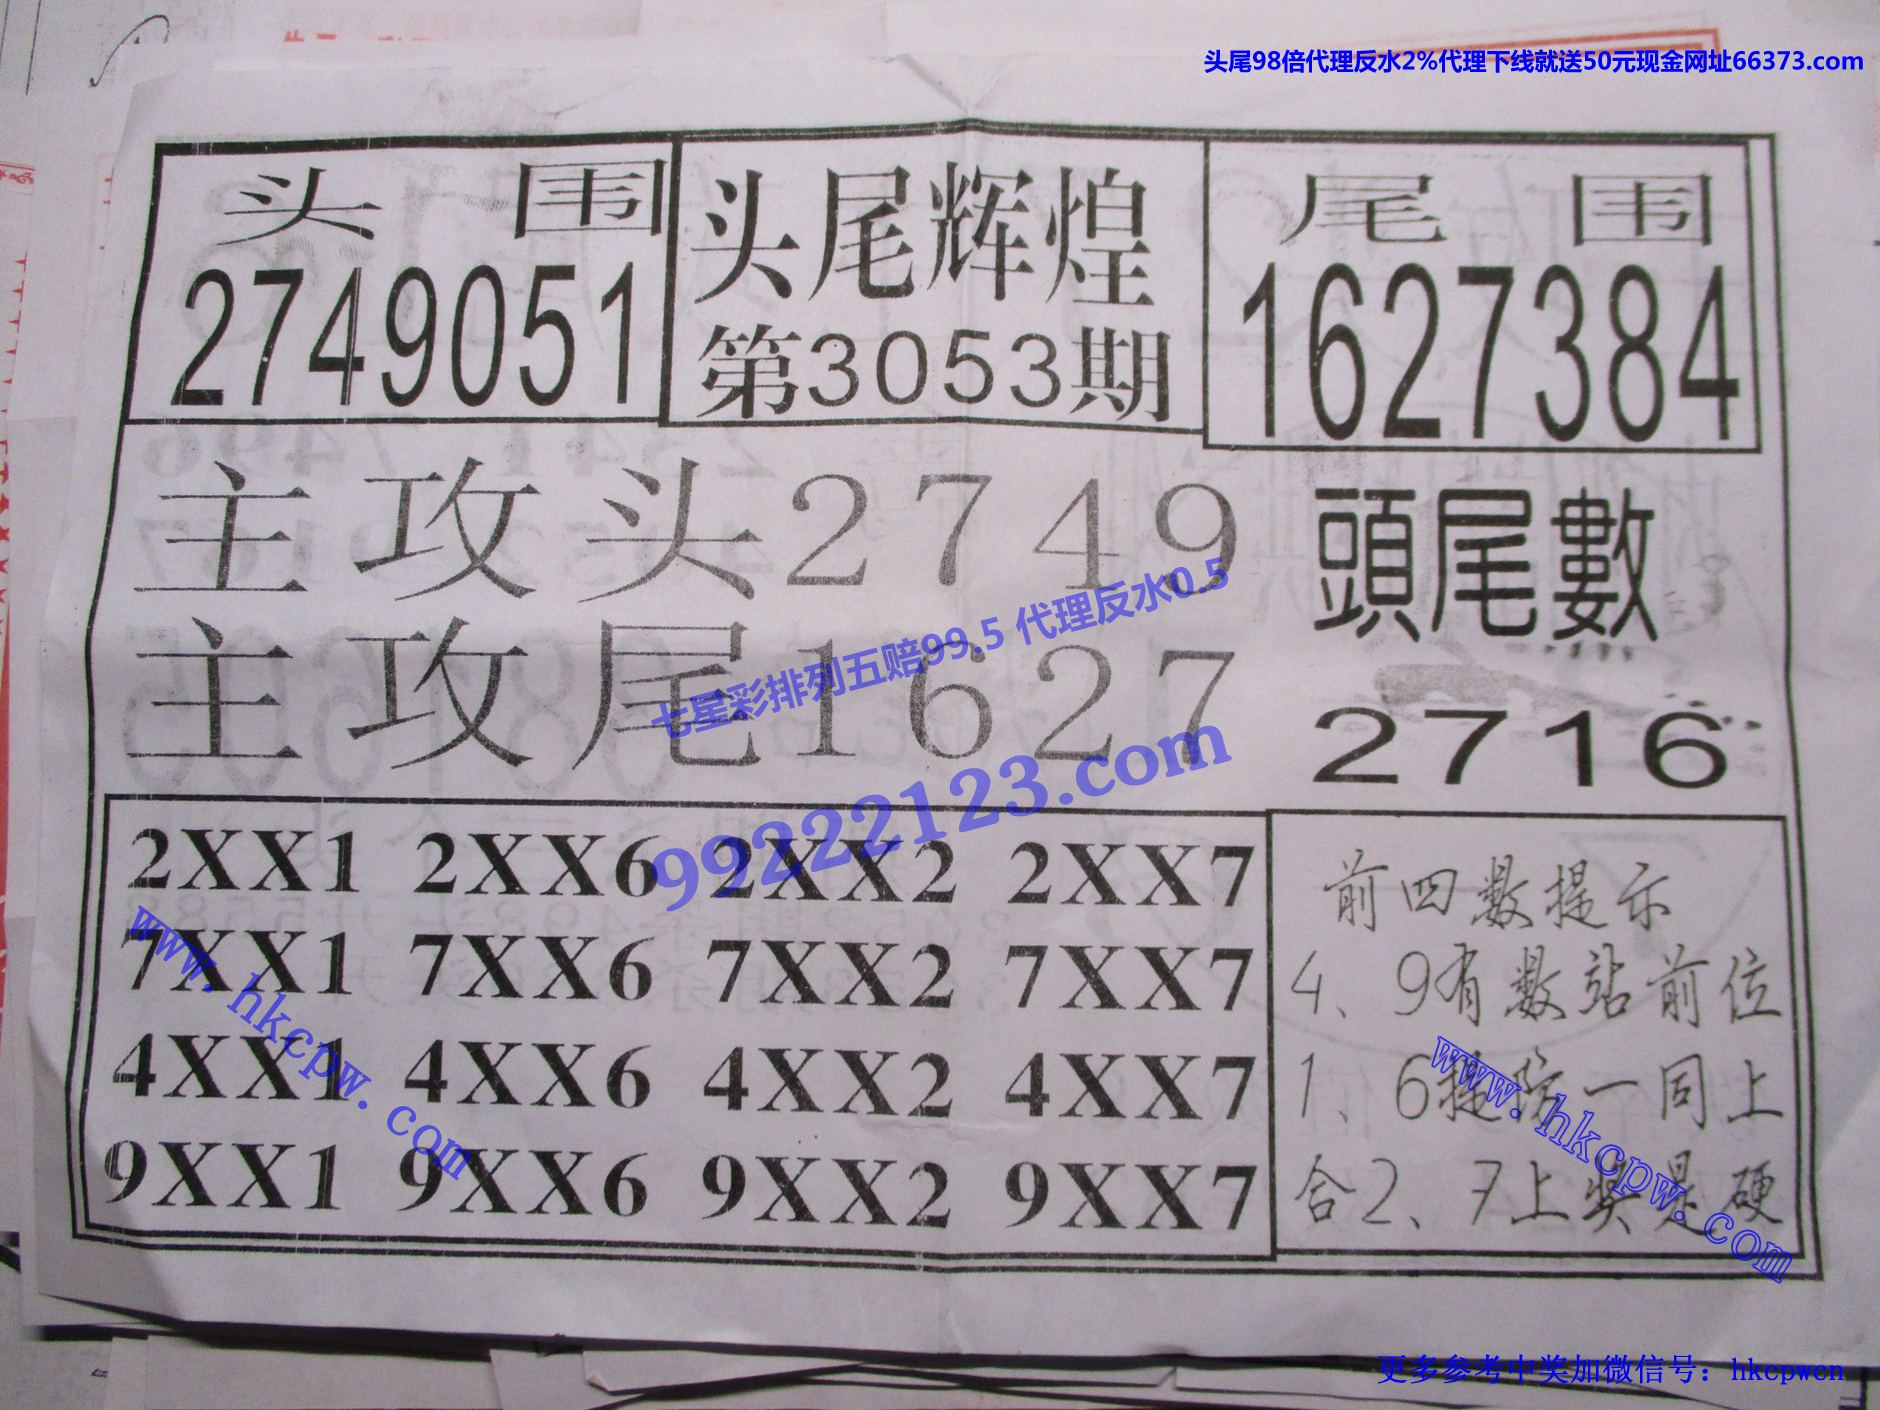 头尾98倍代理反水2%代理下线就送50元现金网址66373.com
头围
2749051
头尾辉煌
第3053期
尾围
1627384
主攻头2749
主攻尾1627
頭尾數
2716
七星彩排列五赔99.5 代理反水0.5
99222123.com
2XX1 2XX6 2XX2 2XX7
7XX1 7XX6 7XX2 7XX7
4XX1 4XX6 4XX2 4XX7
9XX1 9XX6 9XX2 9XX7
www.hkcpw.com
前四数提示
4、9有数站前位
1、6提防一同上
合2、7上奖是硬
www.hkcpw.com
更多参考中奖加微信号：hkcpwcn